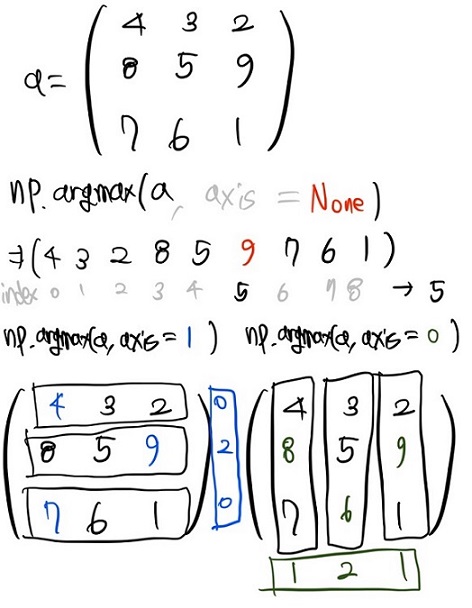 4 3 2
a= 8 5 9
7 6 1
np.argmax(a, axis = None)
⇒(4 3 2 8 5 9 7 6 1)
index 0 1 2 3 4 5 6 7 8 → 5
np.argmax(a, axis = 1) np.argmax(a, axis = 0)
4 3 2 0 4 3 2
8 5 9 2 8 5 9
7 6 1 0 7 6 1
1 2 1